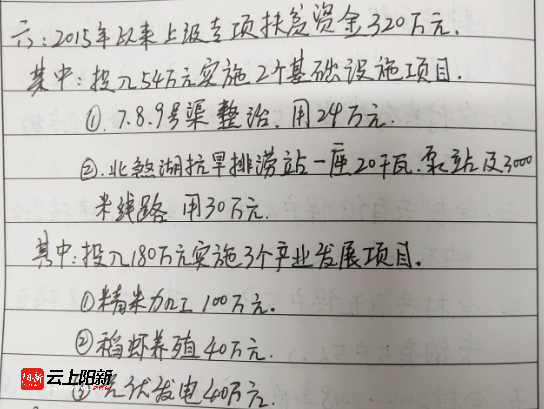 六:2015年以来上级专项扶贫资金320万元.
其中:投入54万元实施2个基础设施项目.
①.7.8.9号渠整治.用24万元.
②.北煞湖抗旱排涝站一座20千瓦.泵站及3000
米线路 用30万元.
其中:投入180万元实施3个产业发展项目.
①精米加工100万元.
②稻虾养殖40万元.
③光伏发电40万元.
阳新 云上阳新